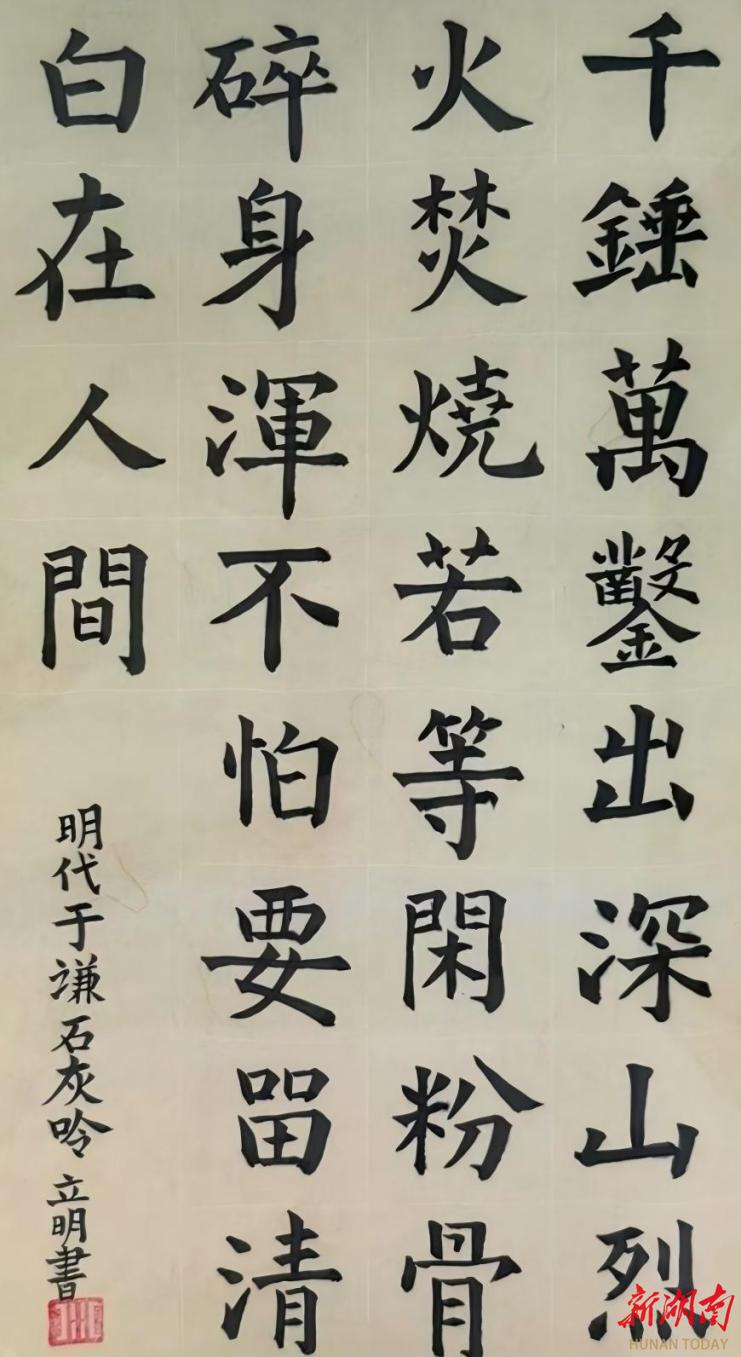 千錘萬鑿出深山烈
火焚燒若等閑粉骨
碎身渾不怕要畱清
白在人間
明代于谦石灰吟 立明書
新湖南
HUNAN TODAY